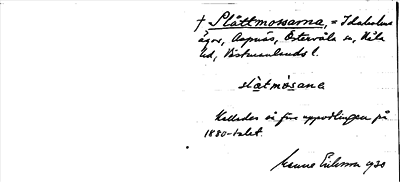 † Slåttmossarna, = Ihalula
ägor, Aspnäs, Östervåla sn, Våla
hd, Västmanlands l.
slåtmósana
Kallades så före uppodlingen på
1880-talet.
Manne Eriksson 1930